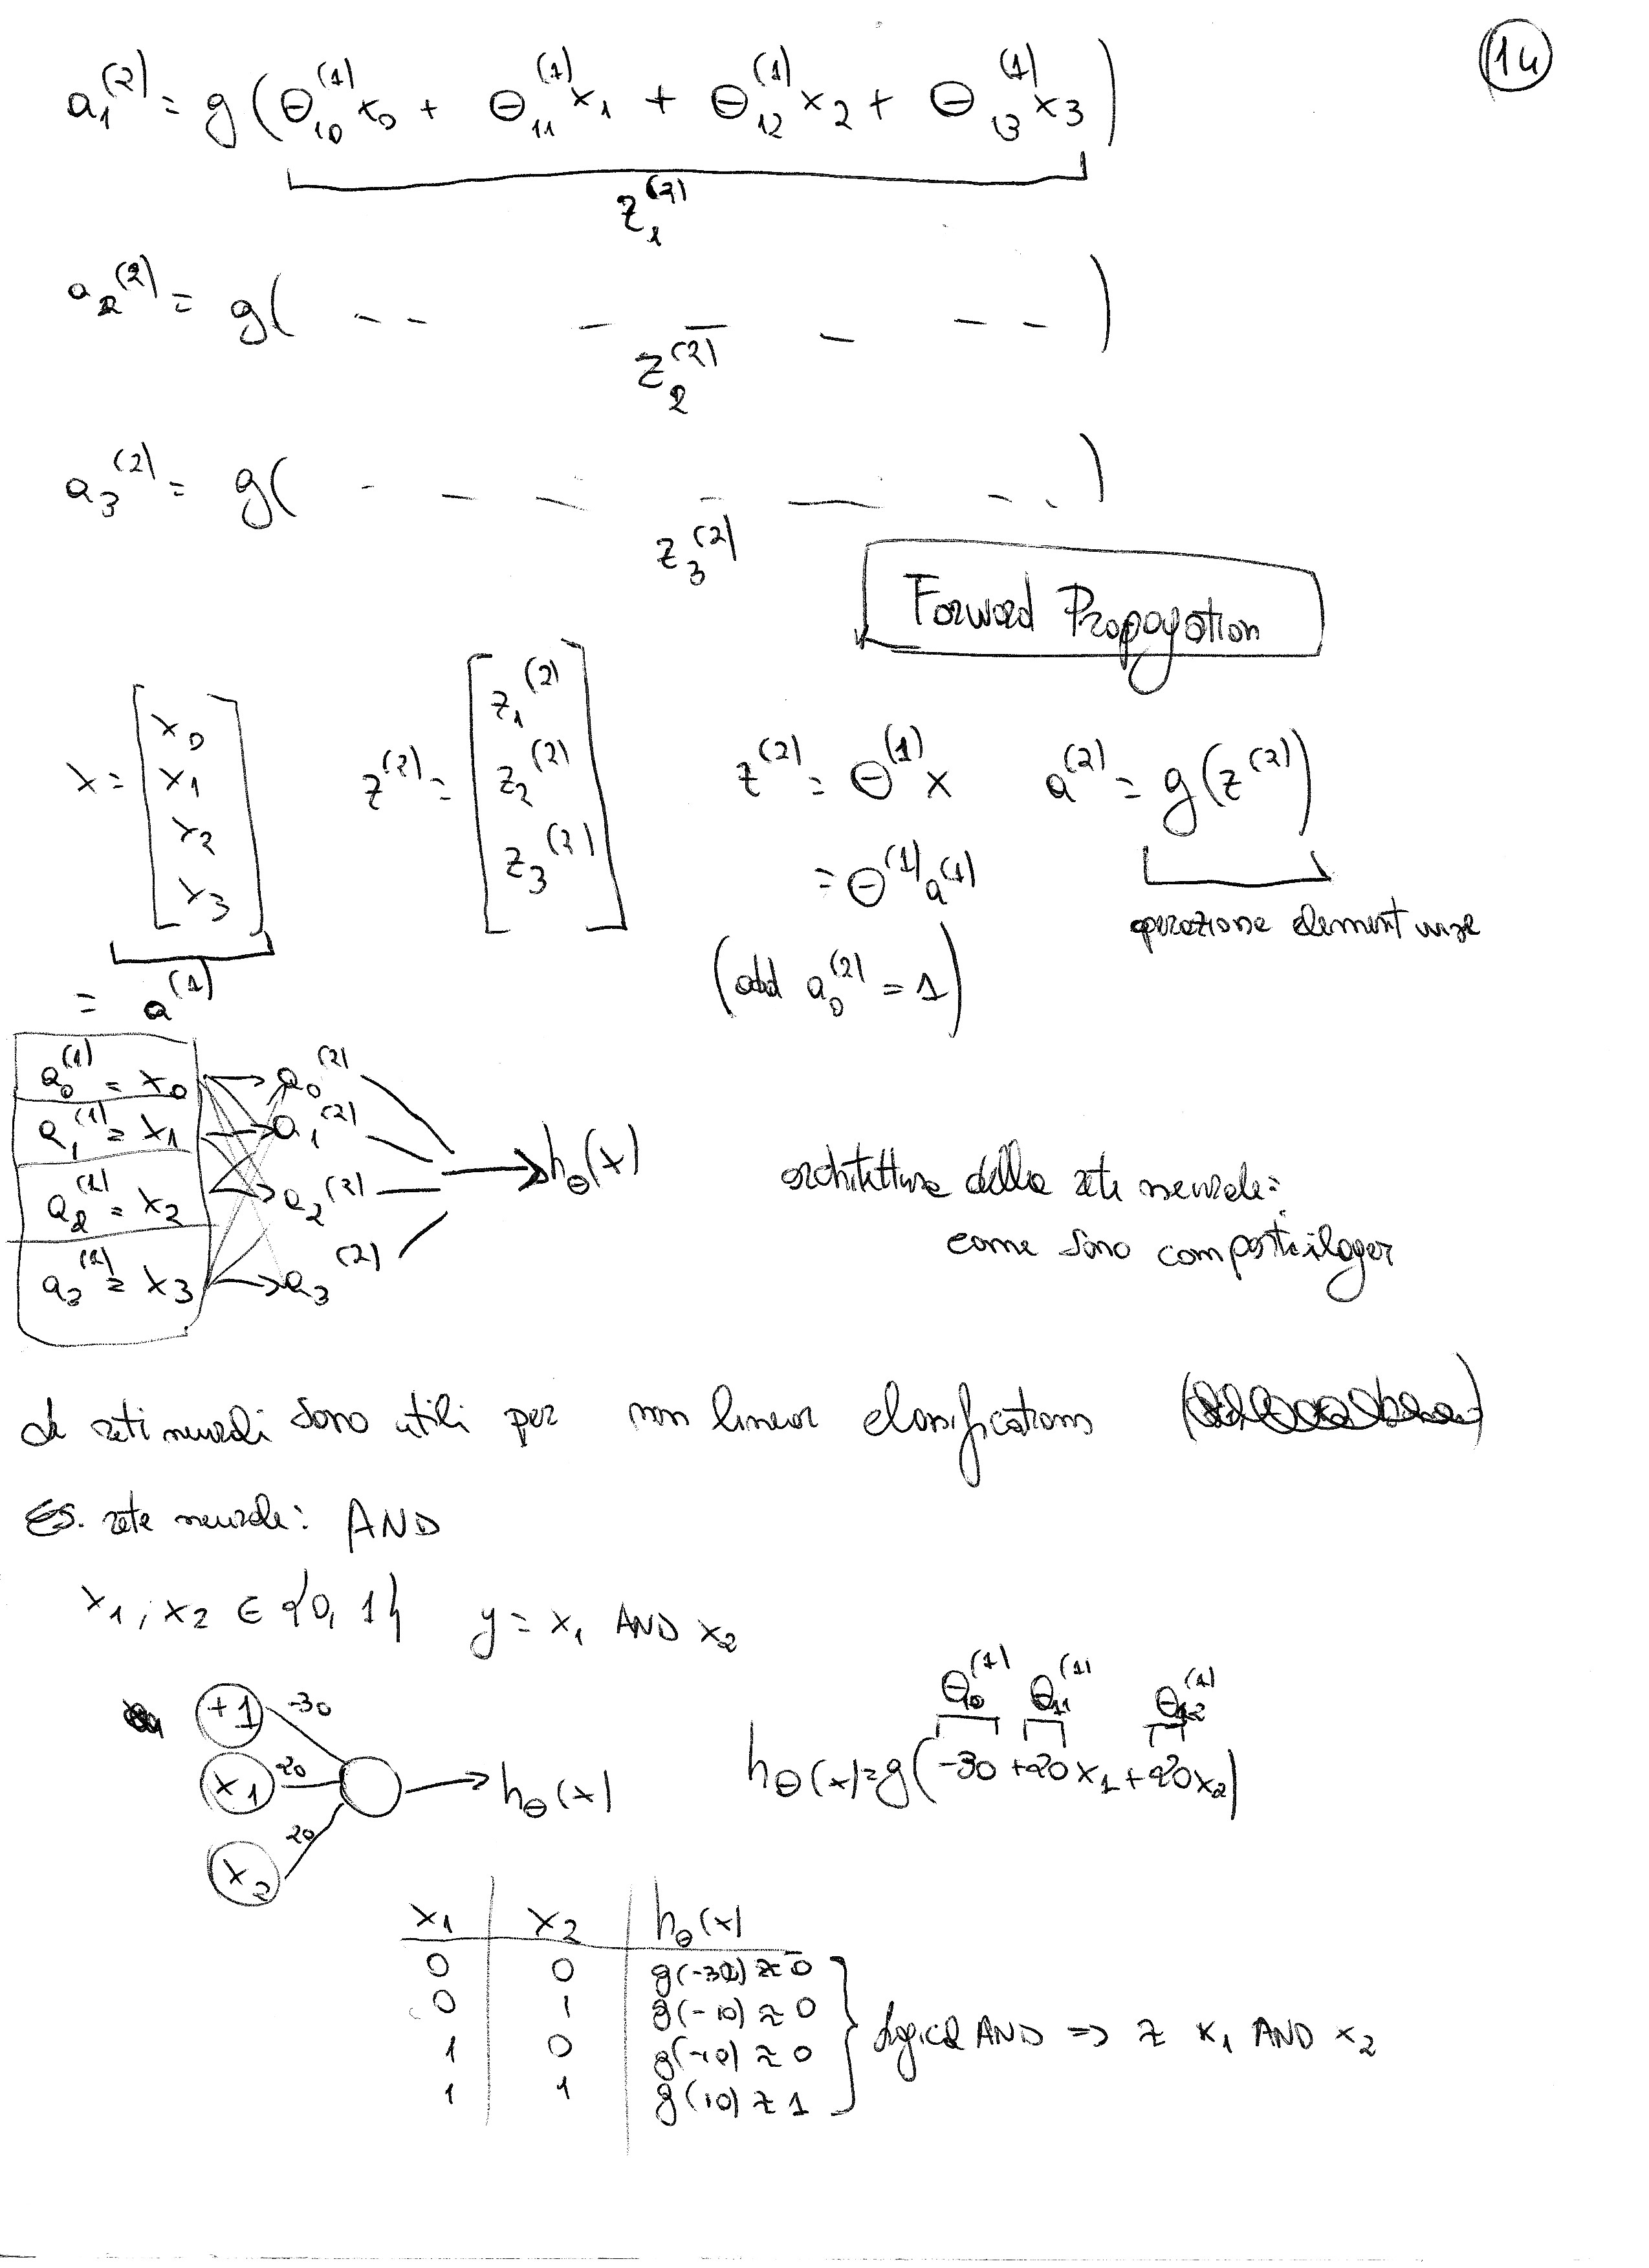 14
a₁⁽²⁾ = g(Θ₁₀⁽¹⁾x₀ + Θ₁₁⁽¹⁾x₁ + Θ₁₂⁽¹⁾x₂ + Θ₁₃⁽¹⁾x₃)
z₁⁽²⁾
a₂⁽²⁾ = g( -- - - - -- )
z₂⁽²⁾
a₃⁽²⁾ = g( - - - - - - . )
z₃⁽²⁾
Forward Propagation
x = [x₀ x₁ x₂ x₃]
= a⁽¹⁾
z⁽²⁾ = [z₁⁽²⁾ z₂⁽²⁾ z₃⁽²⁾]
z⁽²⁾ = Θ⁽¹⁾x
= Θ⁽¹⁾a⁽¹⁾
(add a₀⁽²⁾ = 1)
a⁽²⁾ = g(z⁽²⁾)
operazione element wise
a₀⁽¹⁾ = x₀ a₀⁽²⁾
a₁⁽¹⁾ = x₁ a₁⁽²⁾
a₂⁽¹⁾ = x₂ a₂⁽²⁾
a₃⁽¹⁾ = x₃ a₃⁽²⁾
hΘ(x)
architettura della rete neurale:
come sono composti i layer
Le reti neurali sono utili per non linear classifications
Es. rete neurale: AND
x₁, x₂ ∈ {0, 1} y = x₁ AND x₂
+1 -30
x₁ 20
x₂ 20
hΘ(x)
Θ₁₀⁽¹⁾ Θ₁₁⁽¹⁾ Θ₁₂⁽¹⁾
hΘ(x) = g(-30 + 20x₁ + 20x₂)
x₁ x₂ hΘ(x)
0 0 g(-30) ≈ 0
0 1 g(-10) ≈ 0
1 0 g(-10) ≈ 0
1 1 g(10) ≈ 1
logica AND => ≈ x₁ AND x₂